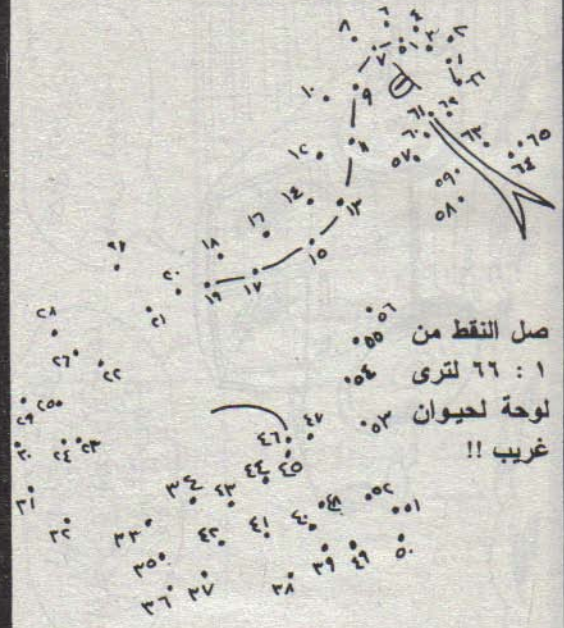 صل النقط من
١ : ٦٦ لترى
لوحة لحيوان
غريب !!
١
٢
٣
٤
٥
٦
٧
٨
٩
١٠
١١
١٢
١٣
١٤
١٥
١٦
١٧
١٨
١٩
٢٠
٢١
٢٢
٢٣
٢٤
٢٥
٢٦
٢٧
٢٨
٢٩
٣٠
٣١
٣٢
٣٣
٣٤
٣٥
٣٦
٣٧
٣٨
٣٩
٤٠
٤١
٤٢
٤٣
٤٤
٤٥
٤٦
٤٧
٤٨
٤٩
٥٠
٥١
٥٢
٥٣
٥٤
٥٥
٥٦
٥٧
٥٨
٥٩
٦٠
٦١
٦٢
٦٣
٦٤
٦٥
٦٦